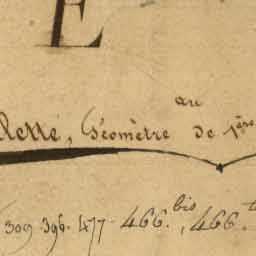 E
au
Géomètre de 1ère
309. 396. 477. 466.bis, 466.t